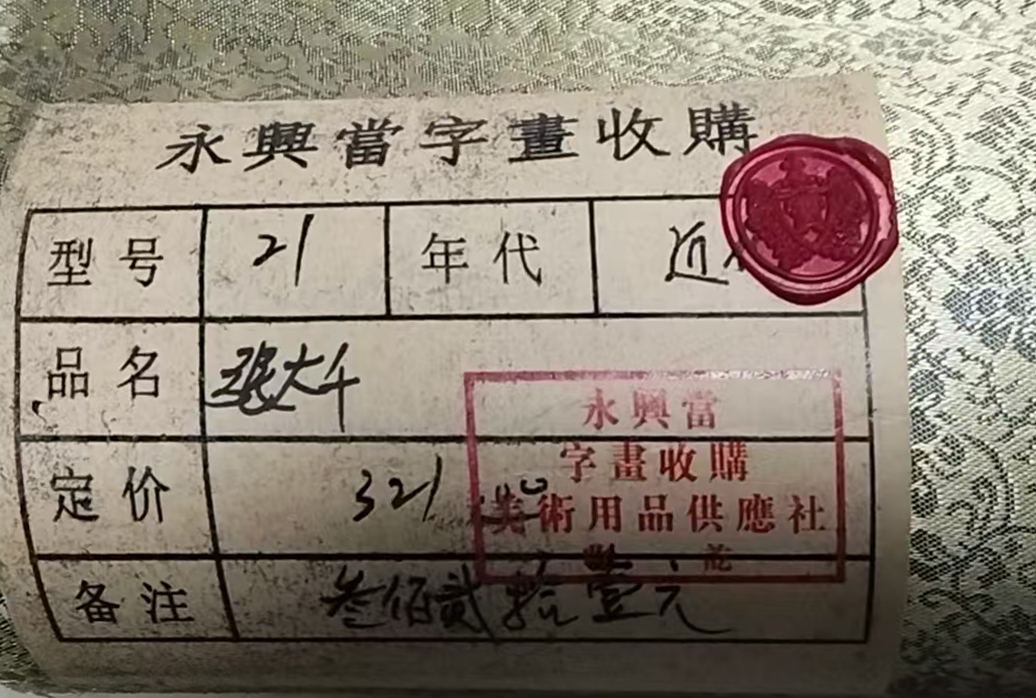 永興當字畫收購
型号 21 年代 近
品名 張大千
定价 321
备注 叁佰贰拾壹元
永興當
字畫收購
美術用品供應社